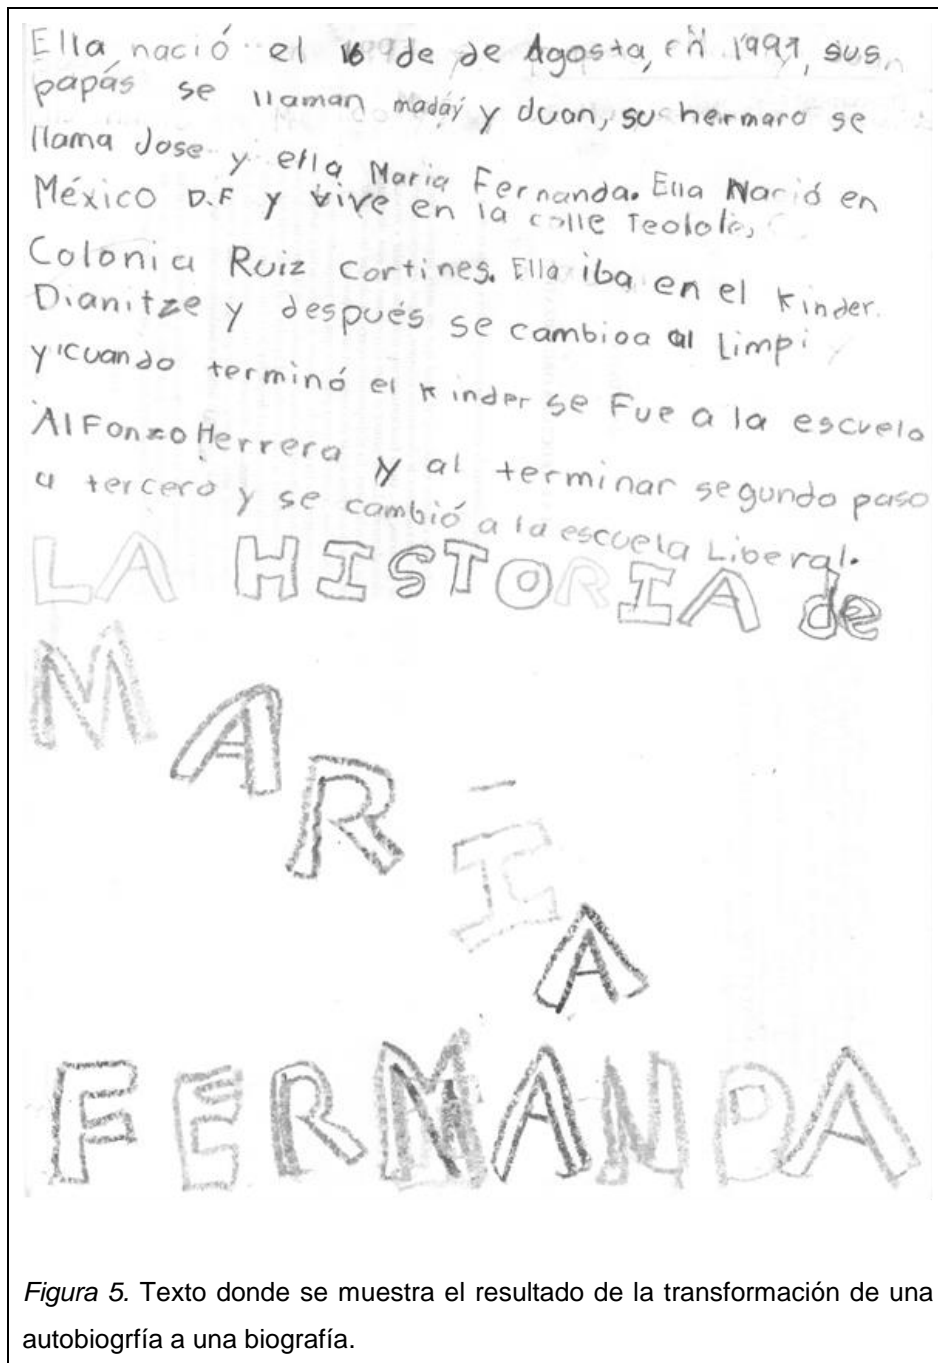 Ella nació el 16 de de Agosta, en 1997, sus
papás se llaman maday y Juan, su hermaro se
llama Jose y ella Maria Fernanda. Ella Nació en
México D.F y vive en la calle
Colonia Ruiz cortines. Ella iba en el Kinder.
Dianitze y después se cambioa al Limpi
y cuando terminó el Kinder se Fue a la escuela
AlFonzo Herrera y al terminar segundo paso
a tercero y se cambió a la escuela Liberal.
LA HISTORIA de
MARIA
FERNANDA
Figura 5. Texto donde se muestra el resultado de la transformación de una
autobiogrfía a una biografía.